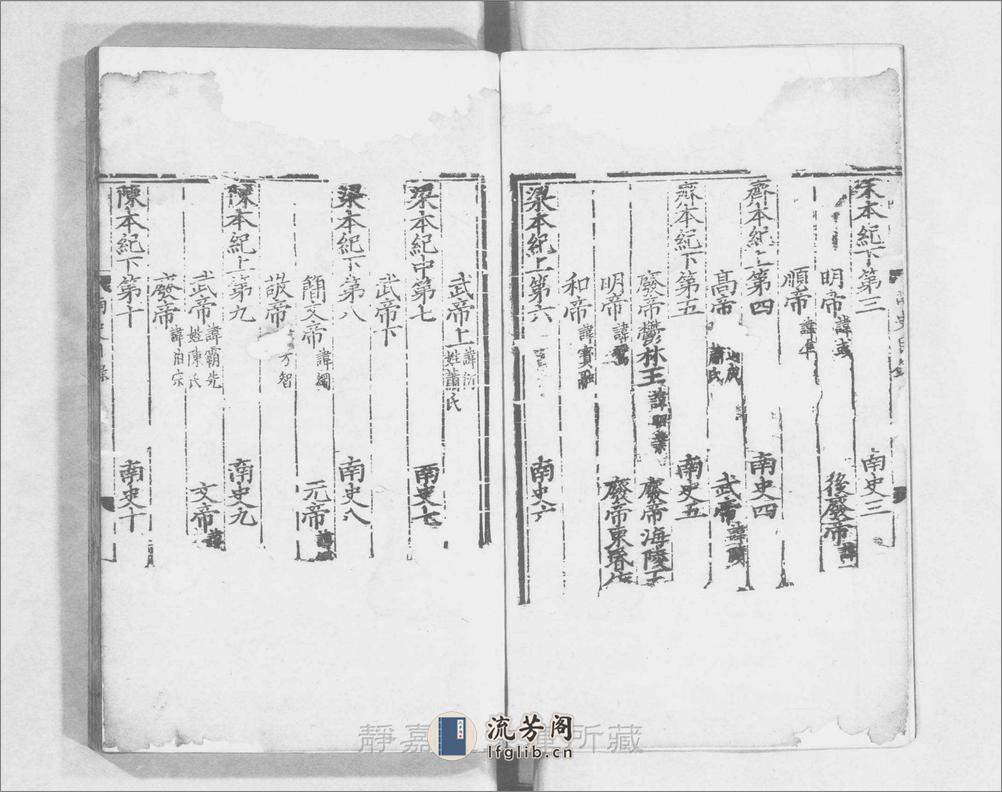 宋本紀下第三 南史三
明帝 諱彧 後廢帝 諱
順帝 諱準
齊本紀上第四 南史四
高帝 蕭氏 武帝 諱賾
齊本紀下第五 南史五
廢帝鬱林王 諱昭業 廢帝海陵王
明帝 諱鸞 廢帝東昏侯
和帝 諱寶融
梁本紀上第六 南史六
武帝上 諱衍 姓蕭氏
梁本紀中第七 南史七
武帝下
梁本紀下第八 南史八
簡文帝 諱綱 元帝 諱
敬帝 方智
陳本紀上第九 南史九
武帝 諱霸先 姓陳氏 文帝 諱
廢帝 諱伯宗
陳本紀下第十 南史十
靜嘉 所藏
流芳阁
lfglib.cn